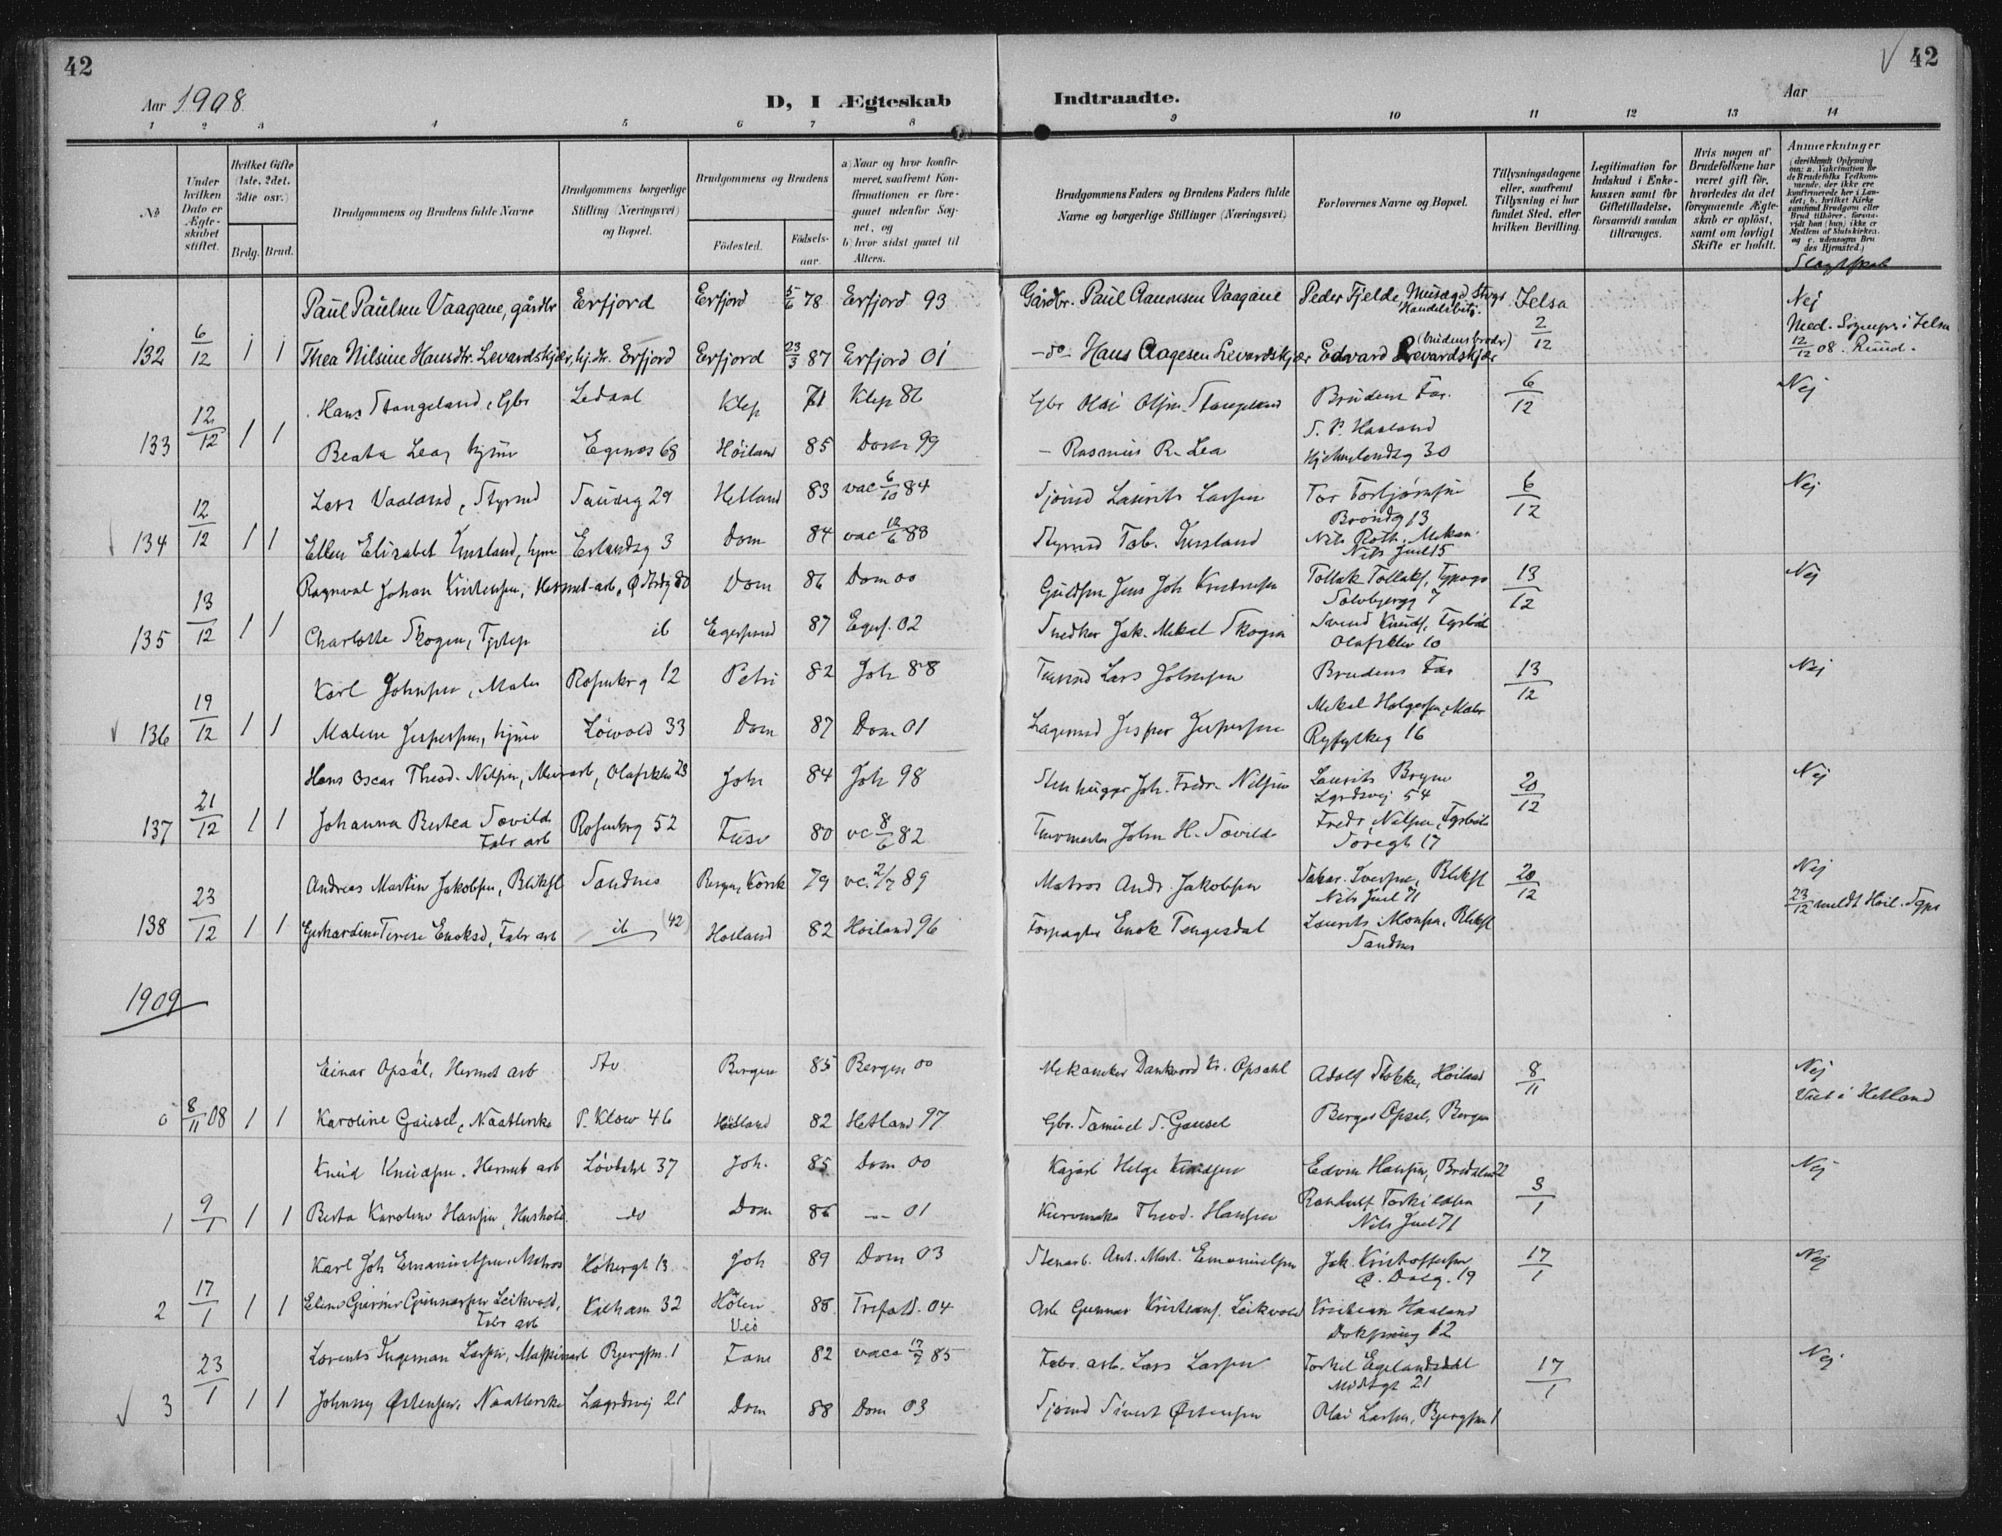 42
Aar 1908.
D, I Ægteskab
Indtraadte.
Aar
√ 42
1 2 3 4 5 6 7 8 9 10 11 12 13 14
No
Under hvilken Dato er Ægteskabet stiftet.
Hvilket Gifte (1ste, 2det, 3die osv.)
Brdg. Brud.
Brudgommens og Brudens fulde Navne
Brudgommens borgerlige Stilling (Næringsvei) og Bopæl.
Brudgommens og Brudens
Fødested.
Fødselsaar.
a) Naar og hvor konfirmeret, saafremt Konfirmationen er foregaaet udenfor Sognet, og
b) hvor sidst gaaet til Alters.
Brudgommens Faders og Brudens Faders fulde Navne og borgerlige Stillinger (Næringsvei)
Forlovernes Navne og Bopæl.
Tillysningsdagene eller, saafremt Tillysning ei har fundet Sted, efter hvilken Bevilling.
Legitimation for Indskud i Enkekassen samt for Giftetilladelse, forsaavidt saadan tiltrænges.
Hvis nogen af Brudefolkene har været gift før, hvorledes da det foregaaende Ægteskab er opløst, samt om lovligt Skifte er holdt.
Anmerkninger
Slagtskab
Paul Paulsen Vaagane, gårdbr Erfjord Erfjord 5/6 78 Erfjord 93 Gårdbr. Paul Aanensen Vaagane Peder Fjelde, Handelsbetj. Jelsa 2/12 Nej
132 6/12 1 1 Thea Nilsine Hansdtr. Levardskjær, hj.dtr. Erfjord Erfjord 23/3 87 Erfjord 01 -do- Hans Aagesen Levardskjær Edvard Levardskjær (brudens broder) Med. Sognepr. i Jelsa 12/12 08. Ruud.
Hans Stangeland, Gbr Ledaal Klep 71 Klep 86 Gbr Olai Olsen Stangeland Brudens Far. 6/12 Nej
133 12/12 1 1 Berta Lea, hjme Egenes 68 Høiland 85 Dom 99 - Rasmus R. Lea S. P. Haaland
Kjelvelandsg 30
Lars Vaaland, Styrmd Sandsg 29 Hetland 83 vac 6/10 84 Sjømd Laurits Larsen Tor Torbjørnsen 6/12 Nej
Brøndg 13
134 12/12 1 1 Ellen Elisabet Insland, hjme Erlandsg 3 Dom 84 vac 12/6 88 Styrmd Tob. Insland Nils Roth. Mekan.
Nils Juel 15
Ragnval Johan Kristensen, Hermet-arb, Ø Strdg 80 Dom 86 Dom 00 Guldsm Jens Joh Kristensen Tollak Tollaks, Typogr 13/12 Nej
Solvbjergg 7
135 13/12 1 1 Charlotte Skogen, ib Egersund 87 Egers. 02 Snedker Jak. Mikal Skogen Svend Knuds, Fyrbøt
Olafsklev 10
Karl Johnsen, Maler Rosenkrg 12 Petri 82 Joh 88 Tømmd Lars Johnsen Brudens Far 13/12 Nej
√ 136 19/12 1 1 Malene Jespersen, hjme Løvold 33 Dom 87 Dom 01 Lagermd Jesper Jespersen Mikal Holgersen, Maler
Ryfylkeg 16
Hans Oscar Theod. Nilsen, Murarb, Olafsklev 23 Joh 84 Joh 98 Stenhugger Joh. Fredr. Nilsen Laurits Bryne 20/12 Nej
Lgrdsvej 54
137 21/12 1 1 Johanna Bertea Sævild Rosenkrg 52 Fusø 80 vc 8/6 82 John H. Sævilde Fredr. Nilsen, Fyrbøt
Fabr arb Toregt 17
Andreas Martin Jakobsen, Bliksl Sandnes Bergen, Korsk 79 vc. 2/7 89 Matros Andr. Jakobsen Sakar. Iversen, Bliksl 20/12 Nej
Nils Juel 71
138 23/12 1 1 Gerhardine Terese Enoksd, Fabr arb ib (42) Høiland 82 Høiland 96 Forpagter Enok Tengesdal Laurits Monsen, Bliksl 23/12 meldt Høil. Sgpr
Sandnes
1909
Einar Opsål, Hermet arb Bergen 85 Bergen 00 Mekaniker Dankvord Kr. Opsahl Adolf Stokke, Høiland 8/11 Nej
0 8/11 08 1 1 Karoline Gausel, Naatlerske P. Klow 46 Hetland 82 Hetland 97 Gbr. Samuel S. Gausel Berger Opsal, Bergen Viet i Hetland
Knud Knudsen. Hermet arb Løvdahl 37 Joh. 85 Dom 00 Kajarb Helge Knudsen Edvin Hansen, Bredalm 22 3/1 Nej
1 9/1 1 1 Berta Karoline Hansen, Hushold. -do Dom 86 -"- 01 Theod. Hansen Randulf Torkildsen
Nils Juel 71
Karl Joh Emanuelsen, Matros Høkergt 13 Joh 89 Dom 03 Stenarb. Ant. Mart. Emanuelsen Jak. Kristoffersen 17/1 Nej
Ø. Dalg. 19
2 17/1 1 1 Eline Gurine Gunnarsen Leikvold, Kalham 32 Hølen 88 Trefold. 04 Arb Gunnar Kristians. Leikvold Kristian Haaland
Fabr arb Veø Doksmug 12
Lorents Ingeman Larsen, Maskinarb Bjergsm. 1 Fane 82 vacc 19/7 85 Fabr. arb. Lars Larsen Torkil Egelandsdal 17/1 Nej
Midtgt 21
√ 3 23/1 1 1 Johnny Østensen, Naatlerske Lagrdsvej 21 Dom 88 Dom 03 Sjømd Sivert Østensen Olai Larsen, Bjergsm 1